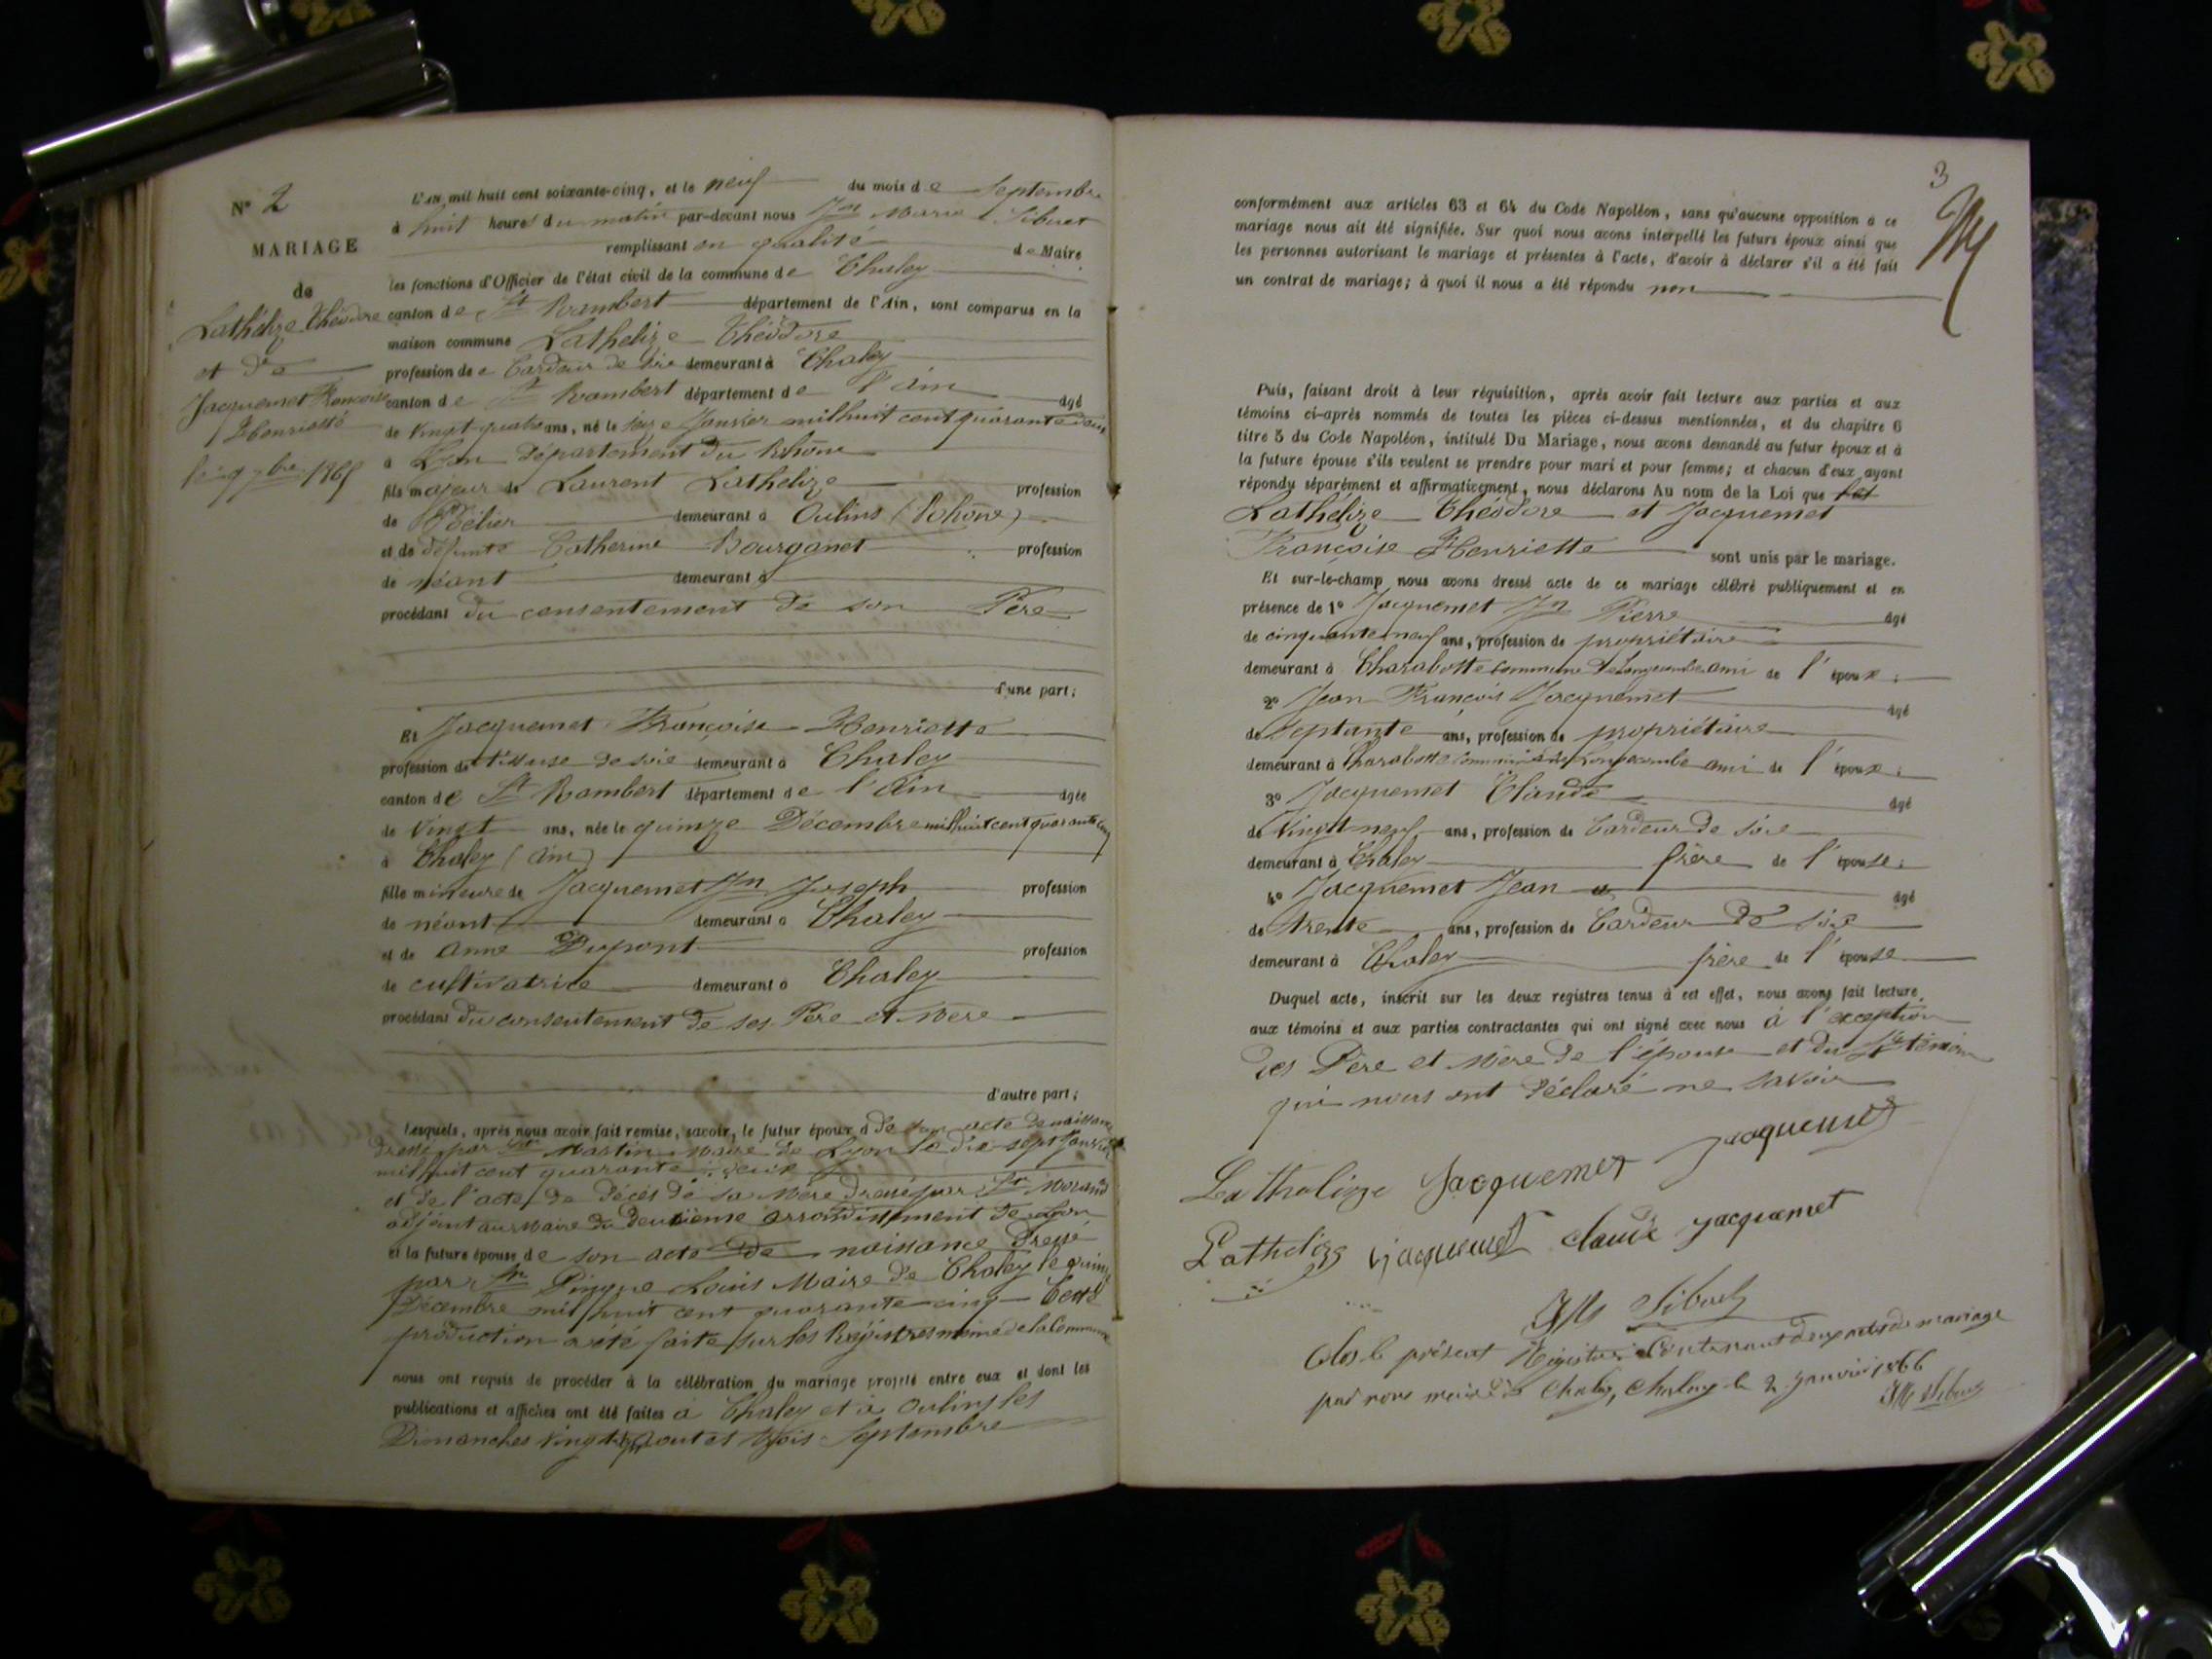 N° 2
MARIAGE
de
Lathélize Théodore
et de
Jacquemet Françoise
Henriette
le 9 7bre 1865
L'AN mil huit cent soixante-cinq, et le neuf du mois de Septembre
à huit heure du matin par-devant nous Jn Marie Sibuet
remplissant en qualité de Maire
les fonctions d'Officier de l'état civil de la commune de Chaley
canton de St Rambert département de l'Ain, sont comparus en la
maison commune Lathelize Théodore
profession de Cardeur de soie demeurant à Chaley
canton de St Rambert département de l'ain âgé
de Vingt quatre ans, né le seize Janvier mil huit cent quarante deux
à Lyon Département du Rhône
fils majeur de Laurent Lathelize profession
de demeurant à Oulins (Rhône)
et de défunte Catherine Bourganet profession
de néant demeurant à
procédant du consentement de son Père
d'une part;
Et Jacquemet Françoise Henriette
profession de tisseuse de soie demeurant à Chaley
canton de St Rambert département de l'Ain âgée
de Vingt ans, née le quinze Décembre mil huit cent quarante cinq
à Chaley (Ain)
fille mineure de Jacquemet Jn Joseph profession
de néant demeurant à Chaley
et de Anne Dupont profession
de cultivatrice demeurant à Chaley
procédant du consentement de ses Père et Mère
d'autre part;
Lesquels, après nous avoir fait remise, savoir, le futur époux d de son acte de naissance
dressé par Mr Martin Maire de Lyon le dix sept Janvier
mil huit cent quarante deux
et de l'acte de décès de sa Mère dressé par Mr Morand
adjoint au Maire du deuxième arrondissement de Lyon
et la future épouse de son acte de naissance dressé
par Mr Pingue Louis Maire de Chaley le quinze
Décembre mil huit cent quarante cinq Cette
production a été faite sur les Régistres même de la Commune
nous ont requis de procéder à la célébration du mariage projeté entre eux et dont les
publications et affiches ont été faites à Chaley et à Oulins les
Dimanches vingt sept aout et trois Septembre
3
conformément aux articles 63 et 64 du Code Napoléon, sans qu'aucune opposition à ce
mariage nous ait été signifiée. Sur quoi nous avons interpellé les futurs époux ainsi que
les personnes autorisant le mariage et présentes à l'acte, d'avoir à déclarer s'il a été fait
un contrat de mariage; à quoi il nous a été répondu non
Puis, faisant droit à leur réquisition, après avoir fait lecture aux parties et aux
témoins ci-après nommés de toutes les pièces ci-dessus mentionnées, et du chapitre 6
titre 5 du Code Napoléon, intitulé Du Mariage, nous avons demandé au futur époux et à
la future épouse s'ils veulent se prendre pour mari et pour femme; et chacun d'eux ayant
répondu séparément et affirmativement, nous déclarons Au nom de la Loi que
Lathélize Théodore et Jacquemet
Françoise Henriette sont unis par le mariage.
Et sur-le-champ nous avons dressé acte de ce mariage célébré publiquement et en
présence de 1° Jacquemet Jn Pierre âgé
de cinquante neuf ans, profession de propriétaire
demeurant à Charabotte commune de Longecombe ami de l'époux;
2° Jean François Jacquemet âgé
de Septante ans, profession de propriétaire
demeurant à Charabotte commune de Longecombe ami de l'époux;
3° Jacquemet Claude âgé
de Vingt neuf ans, profession de Cardeur de soie
demeurant à Chaley frère de l'épouse;
4° Jacquemet Jean âgé
de trente ans, profession de Cardeur de soie
demeurant à Chaley frère de l'épouse
Duquel acte, inscrit sur les deux registres tenus à cet effet, nous avons fait lecture
aux témoins et aux parties contractantes qui ont signé avec nous à l'exception
des Père et Mère de l'épouse et du témoin
qui nous ont déclaré ne savoir
Lathelize Jacquemet Jacquemet
Lathelize Jacquemet claude jacquemet
Sibuet
Clos le présent Régistre contenant deux actes de mariage
par nous maire de Chaley, Chaley le 2 janvier 1866
Sibuet